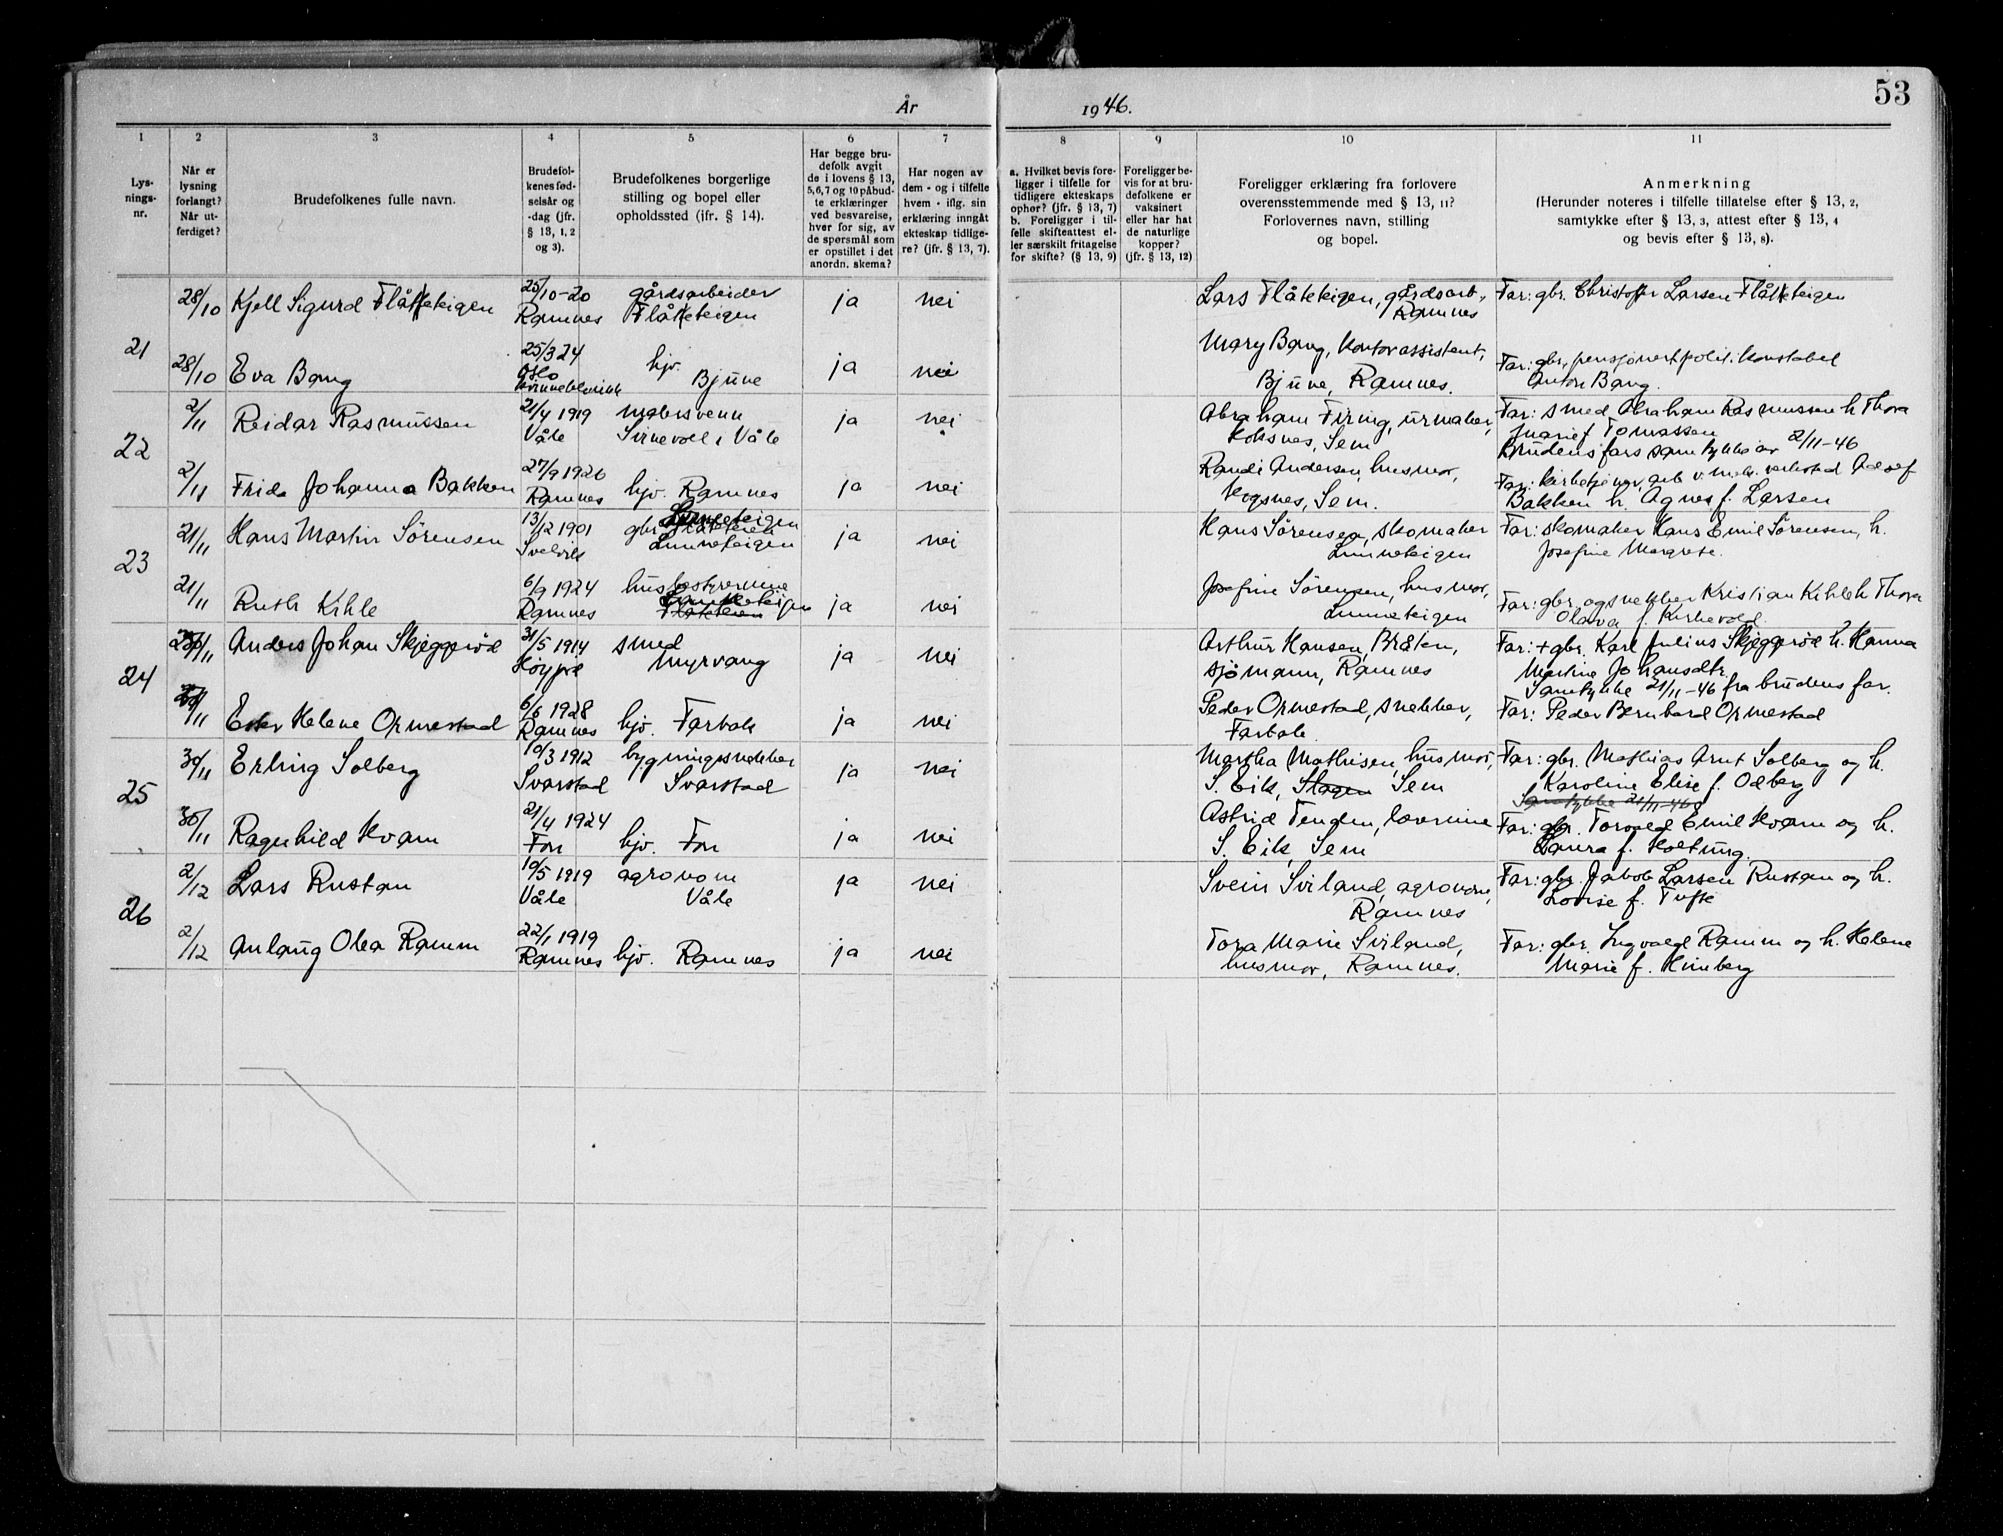 53
År 1946.
1 2 3 4 5 6 7 8 9 10 11
Lys-
nings-
nr.
Når er
lysning
forlangt?
Når ut-
ferdiget?
Brudefolkenes fulle navn.
Brudefol-
kenes fød-
selsår og
-dag (jfr.
§ 13, 1, 2
og 3).
Brudefolkenes borgerlige
stilling og bopel eller
opholdssted (ifr. § 14).
Har begge bru-
defolk avgit
de i lovens § 13,
5,6,7 og 10 påbud-
te erklæringer
ved besvarelse,
hver for sig, av
de spørsmål som
er opstillet i det
anordn. skema?
Har nogen av
dem - og i tilfelle
hvem - iflg. sin
erklæring inngått
ekteskap tidlige-
re? (jfr. § 13, 7).
a. Hvilket bevis fore-
ligger i tilfelle for
tidligere ekteskaps
ophør? (jfr. § 13, 7)
b. Foreligger i til-
felle skifteattest el-
ler særskilt fritagelse
for skifte? (§ 13, 9)
Foreligger be-
vis for at bru-
defolkene er
vaksinert
eller har hat
de naturlige
kopper?
(jfr. § 13, 12)
Foreligger erklæring fra forlovere
overensstemmende med § 13, 11?
Forlovernes navn, stilling
og bopel.
Anmerkning
(Herunder noteres i tilfelle tillatelse efter § 13, 2,
samtykke efter § 13, 3, attest efter § 13, 4
og bevis efter § 13, 8).
21
28/10 Kjell Sigurd Flåtteteigen
25/10-20
Ramnes
gårdsarbeider
Flåtteteigen
ja nei
Lars Flåtteigen, gårdsarb.,
Ramnes
Far: gbr. Christoffer Larsen Flåtteteigen
28/10 Eva Bang
25/3 24
Oslo
hjv.
Bjune
ja nei
Mary Bang, kontorassistent,
Bjune, Ramnes.
Far: gbr., pensjonert polit. konstabel
Anton Bang.
22
2/11 Reidar Rasmussen
21/4 1919
Våle
malersvenn
Sirnevoll i Våle
ja nei
Abraham Firing, urmaker,
Sem
Far: smed Abraham Rasmussen h. Thora
Marie f. Tomassen
Brudens fars samtykke av 2/11-46
2/11 Frida Johanna Bakken
27/9 1926
Ramnes
hjv. Ramnes
ja nei
Randi Andersen, husmor,
Sem.
Far: kirketjener, arb. v. mek. verksted Adolf
Bakken h. Agnes f. Larsen
23
21/11 Hans Martin Sörensen
13/12 1901
Svelvik
Linneteigen
gbr.
Linneteigen
ja nei
Hans Sörensen, skomaker
Linneteigen
Far: skomaker Hans Emil Sörensen, h.
Josefine Margrete.
21/11 Ruth Kihle
6/9 1924
Ramnes
husbestyrerinne
Linneteigen
ja nei
Josefine Sörensen, husmor,
Linneteigen
Far: gbr. og snekker Kristian Kihle h. Thora
Olava f. Kirkevold.
24
Anders Johan Skjeggeröd
31/5 1914
smed
Myrvang
ja nei
Arthur Hansen, Bråten,
sjömann, Ramnes
Far: + gbr. Karl Julius Skjeggeröd h. Hanna
Martine Johansdtr.
Samtykke 21/11-46 fra brudens far.
Ester Helene Ormestad
6/6 1928
Ramnes
hjv. Farbak
ja nei
Peder Ormestad, snekker,
Farbak.
Far: Peder Bernhard Ormestad
25
30/11 Erling Solberg
10/3 1912
Svarstad
bygningssnekker
Svarstad
ja nei
Martha Mathisen, husmor,
S. Eik, Slagen Sem
Far: gbr. Mathias Arnt Solberg og h.
Karoline Elise f. Odberg
Samtykke 21/11-46
30/11 Ragnhild Kvam
21/4 1924
Fon
hjv. Fon
ja nei
Astrid Tenden, lærerinne
S. Eik, Sem
Far: gbr. Torvald Emil Kvam og h.
Laura f. Holtung.
26
2/12 Lars Rustan
10/5 1919
Våle
agronom
Våle
ja nei
Svein Sviland, agronom,
Ramnes
Far: gbr. Jakob Larsen Rustan og h.
Lovise f. Tufte
2/12 Anlaug Olea Ramm
22/1 1919
Ramnes
hjv. Ramnes
ja nei
Tora Marie Sviland,
husmor, Ramnes.
Far: gbr. Ingvald Ramm og h. Helene
Marie f. Himberg